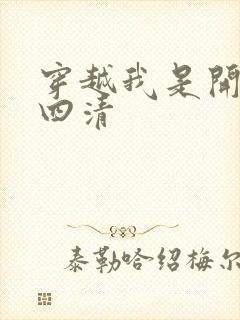 穿越我是開
四清
泰勒哈绍梅尔